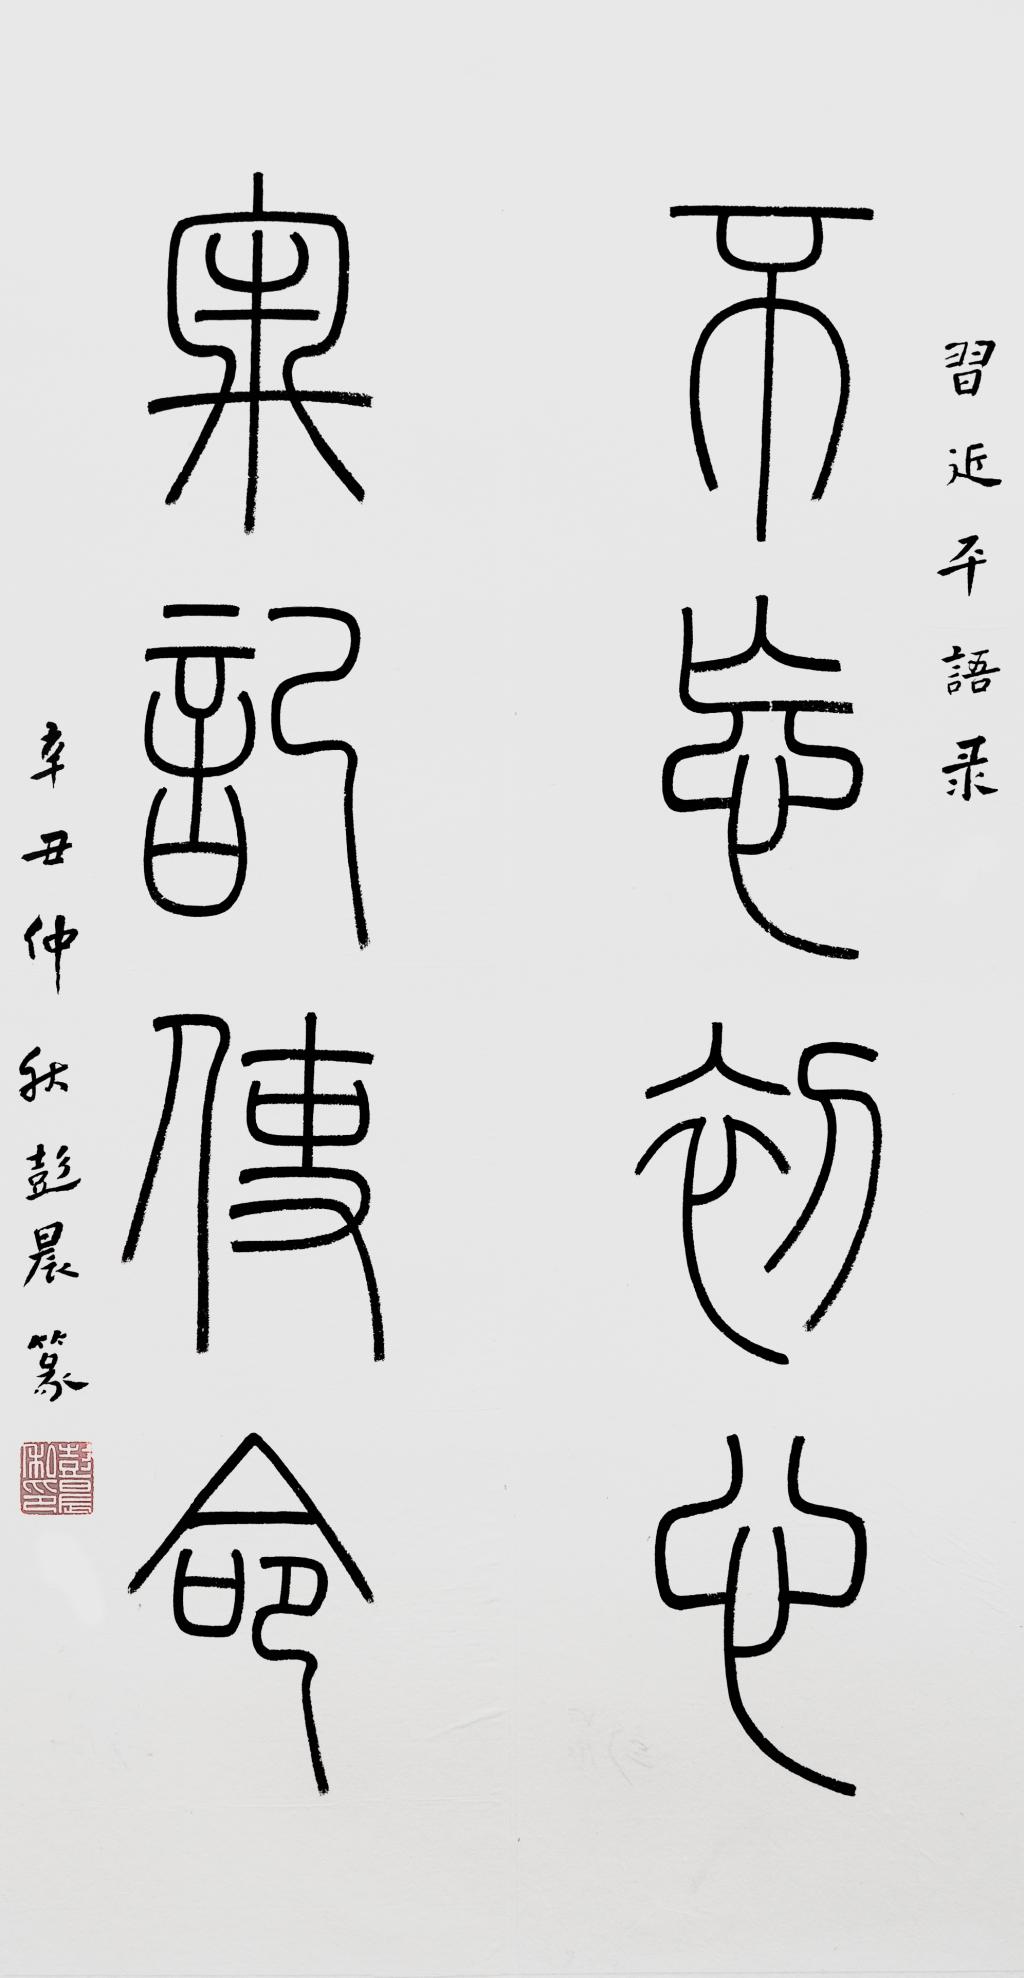 習近平語录
不忘初心
牢記使命
辛丑仲秋彭晨篆
彭晨
私印